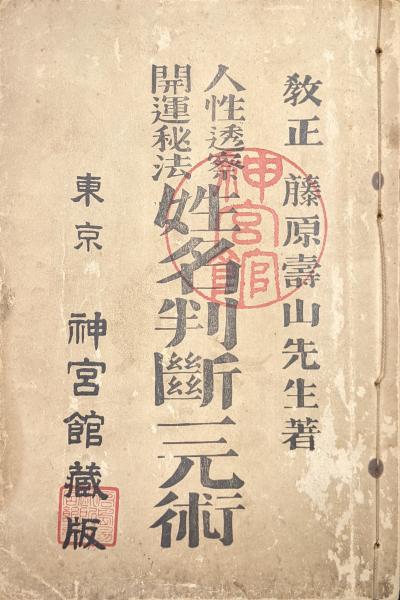 教正 藤原壽山先生著
人性透察
開運秘法
姓名判斷三元術
東京 神宮館藏版
神宮館